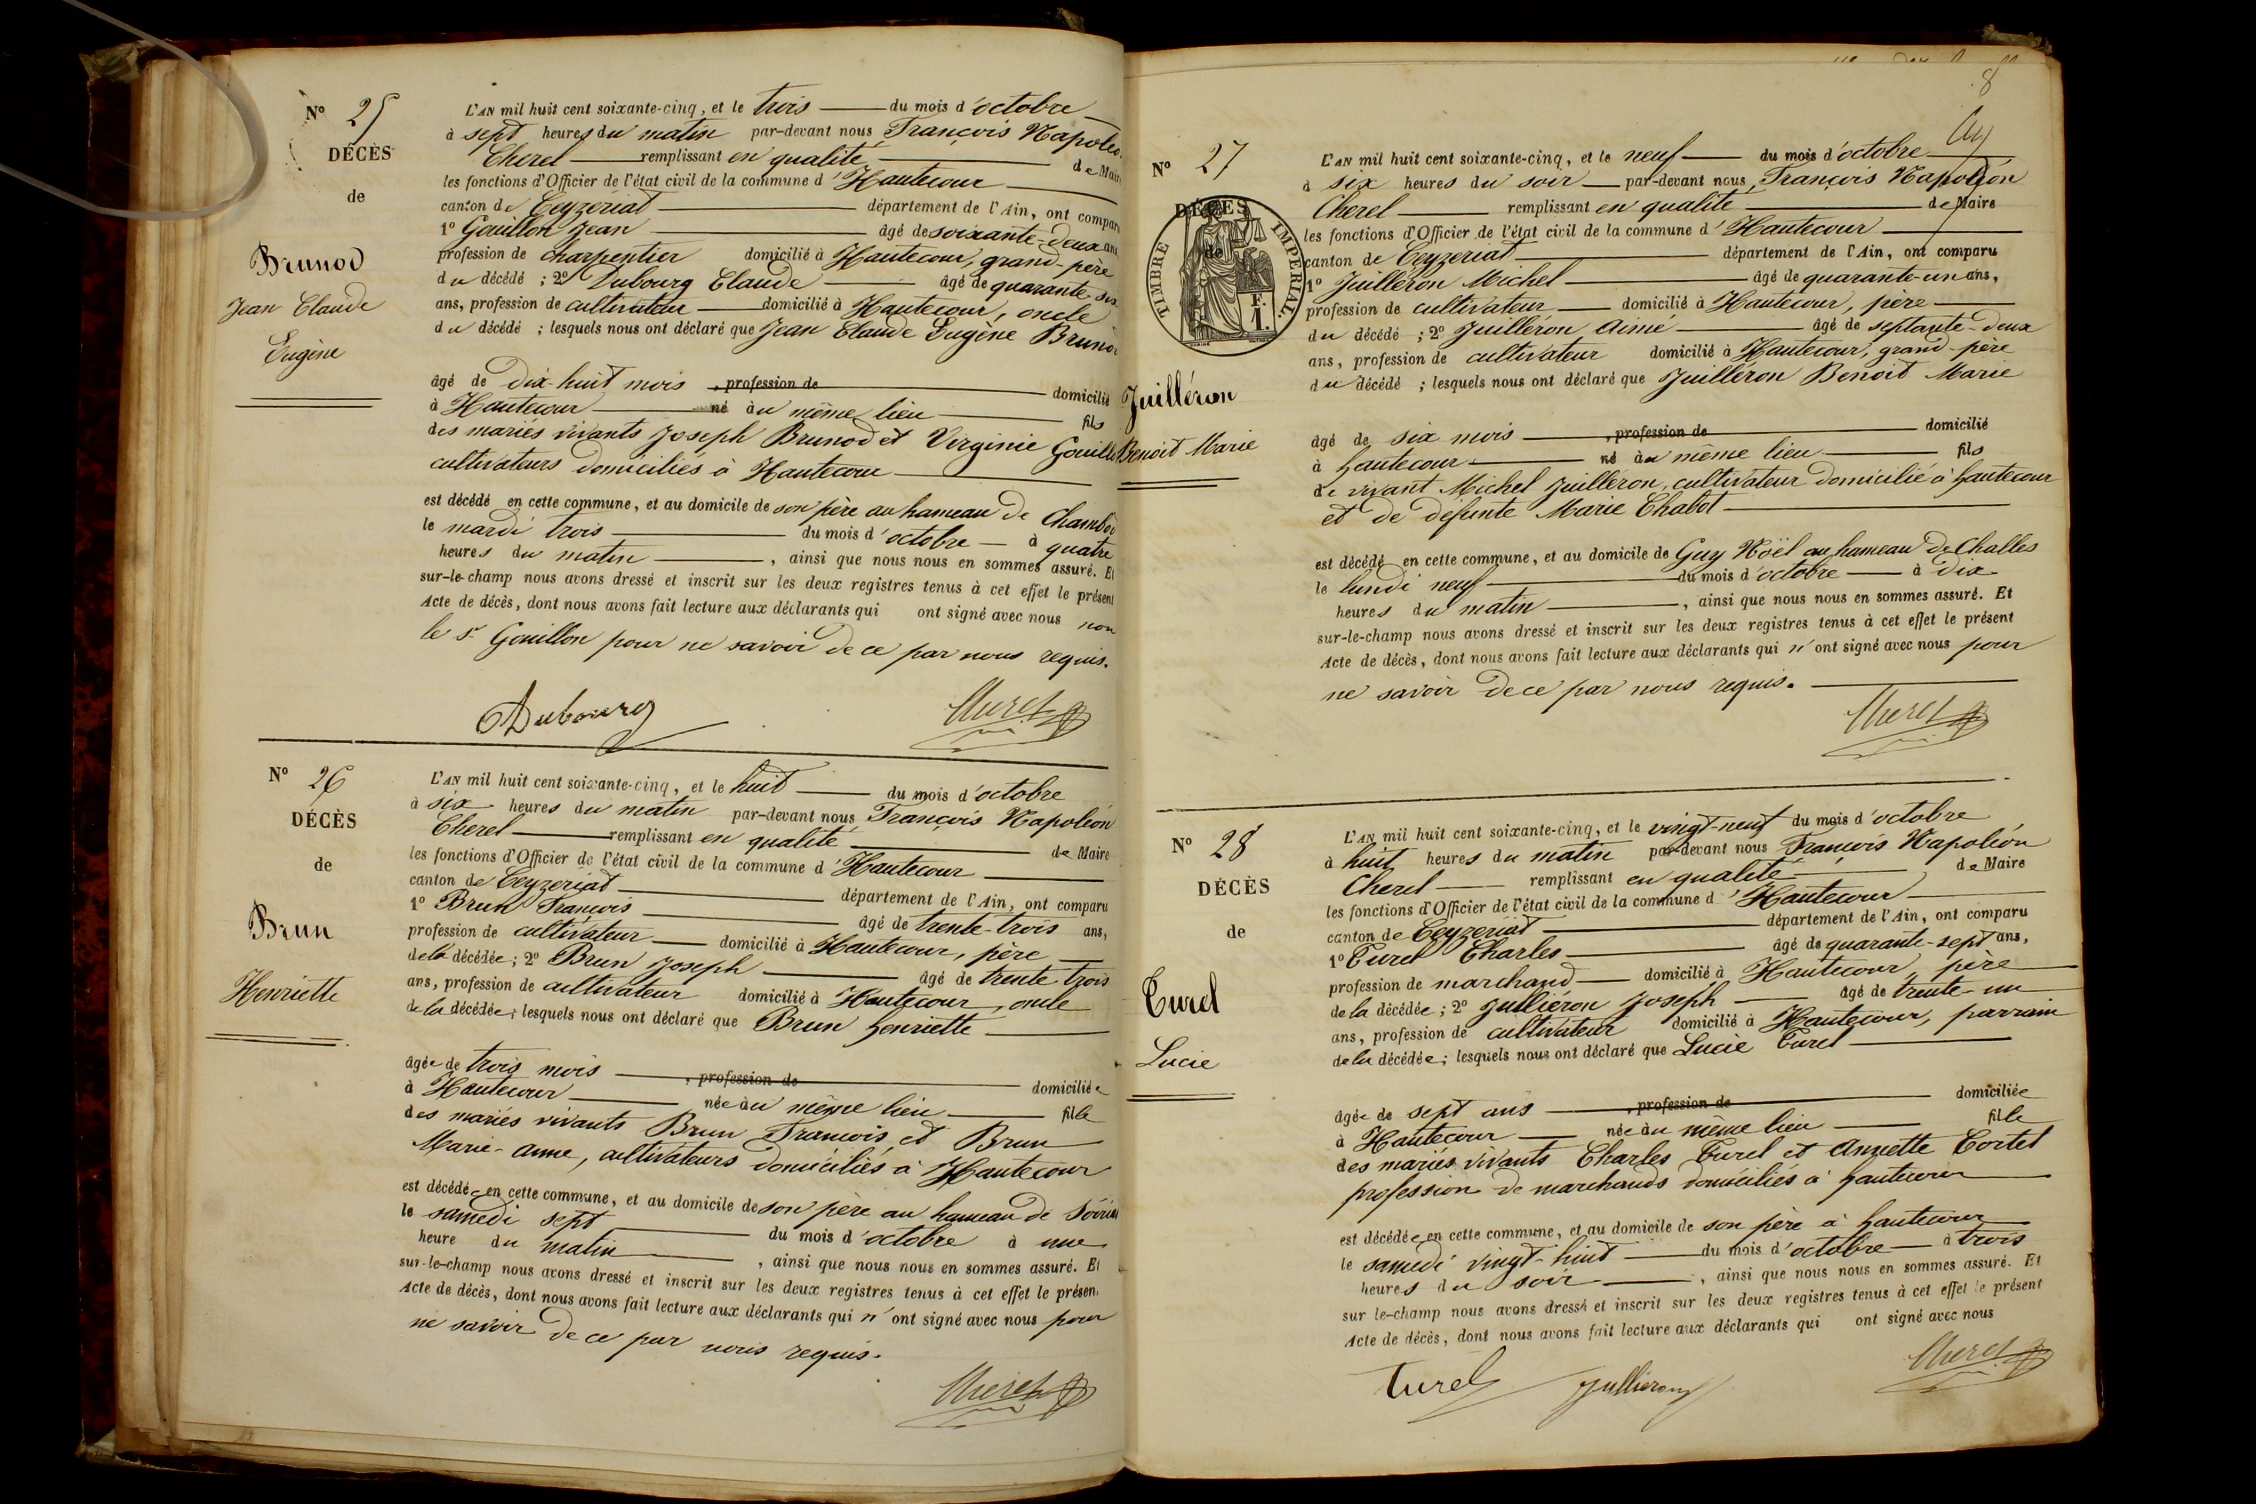 Nº 25
DÉCÈS
de
Brunod
Jean Claude
Eugène
L'AN mil huit cent soixante-cinq, et le trois du mois d'octobre
à sept heures du matin par-devant nous François Napoléo
Cherel remplissant en qualité de Mair
les fonctions d'Officier de l'état civil de la commune d'Hautecour
canton de Ceyzériat département de l'Ain, ont compar
1º Gouillon Jean âgé de soixante-deux ans
profession de charpentier domicilié à Hautecour, grand-père
du décédé ; 2º Dubourg Claude âgé de quarante six
ans, profession de cultivateur domicilié à Hautecour, oncle
du décédé ; lesquels nous ont déclaré que Jean Claude Eugène Brunod
âgé de dix-huit mois , profession de domicilié
à Hautecour né au même lieu fils
des mariés vivants Joseph Brunod et Virginie Gouillo
cultivateurs domiciliés à Hautecour
est décédé en cette commune, et au domicile de son père au hameau de Chambod
le mardi trois du mois d'octobre à quatre
heures du matin , ainsi que nous nous en sommes assuré. Et
sur-le-champ nous avons dressé et inscrit sur les deux registres tenus à cet effet le présent
Acte de décès, dont nous avons fait lecture aux déclarants qui ont signé avec nous non
le Sr Gouillon pour ne savoir de ce par nous requis.
Dubourg Cherel
Nº 26
DÉCÈS
de
Brun
Henriette
L'AN mil huit cent soixante-cinq, et le huit du mois d'octobre
à six heures du matin par-devant nous François Napoléon
Cherel remplissant en qualité de Maire
les fonctions d'Officier de l'état civil de la commune d'Hautecour
canton de Ceyzériat département de l'Ain, ont comparu
1º Brun François âgé de trente-trois ans,
profession de cultivateur domicilié à Hautecour, père
de la décédée ; 2º Brun Joseph âgé de trente trois
ans, profession de cultivateur domicilié à Hautecour, oncle
de la décédée ; lesquels nous ont déclaré que Brun henriette
âgée de trois mois , profession de domiciliée
à Hautecour née au même lieu fille
des mariés vivants Brun François et Brun
Marie-Anne, cultivateurs domiciliés à Hautecour
est décédée en cette commune, et au domicile de son père au hameau de
le samedi sept du mois d'octobre à une
heure du matin , ainsi que nous nous en sommes assuré. Et
sur-le-champ nous avons dressé et inscrit sur les deux registres tenus à cet effet le présen
Acte de décès, dont nous avons fait lecture aux déclarants qui n'ont signé avec nous pour
ne savoir de ce par nous requis.
Cherel
8
Nº 27
DÉCÈS
de
TIMBRE IMPERIAL
F.
1.
Juilléron
Benoit Marie
L'AN mil huit cent soixante-cinq, et le neuf du mois d'octobre
à six heures du soir par-devant nous François Napoléon
Cherel remplissant en qualité de Maire
les fonctions d'Officier de l'état civil de la commune d'Hautecour
canton de Ceyzeriat département de l'Ain, ont comparu
1º Juilléron Michel âgé de quarante-un ans,
profession de cultivateur domicilié à Hautecour, père
du décédé ; 2º Juilléron Aimé âgé de septante-deux
ans, profession de cultivateur domicilié à Hautecour, grand-père
du décédé ; lesquels nous ont déclaré que Juilléron Benoit Marie
âgé de six mois , profession de domicilié
à hautecour né au même lieu fils
de vivant Michel Juilléron, cultivateur domicilié à hautecour
et de défunte Marie Chabot
est décédé en cette commune, et au domicile de Guy Noël au hameau de Challes
le lundi neuf du mois d'octobre à dix
heures du matin , ainsi que nous nous en sommes assuré. Et
sur-le-champ nous avons dressé et inscrit sur les deux registres tenus à cet effet le présent
Acte de décès, dont nous avons fait lecture aux déclarants qui n'ont signé avec nous pour
ne savoir de ce par nous requis.
Cherel
Nº 28
DÉCÈS
de
Turel
Lucie
L'AN mil huit cent soixante-cinq, et le vingt-neuf du mois d'octobre
à huit heures du matin par-devant nous François Napoléon
Cherel remplissant en qualité de Maire
les fonctions d'Officier de l'état civil de la commune d'Hautecour
canton de Ceyzériat département de l'Ain, ont comparu
1º Turel Charles âgé de quarante-sept ans,
profession de marchand domicilié à Hautecour, père
de la décédée ; 2º Julliéron Joseph âgé de trente-un
ans, profession de cultivateur domicilié à Hautecour, parrain
de la décédée ; lesquels nous ont déclaré que Lucie Turel
âgée de sept ans , profession de domiciliée
à Hautecour née au même lieu fille
des mariés vivants Charles Turel et Annette Tortet
profession de marchands domiciliés à hautecour
est décédée en cette commune, et au domicile de son père à hautecour
le samedi vingt-huit du mois d'octobre à trois
heures du soir , ainsi que nous nous en sommes assuré. Et
sur le-champ nous avons dressé et inscrit sur les deux registres tenus à cet effet le présent
Acte de décès, dont nous avons fait lecture aux déclarants qui ont signé avec nous
Turel Jullieron Cherel